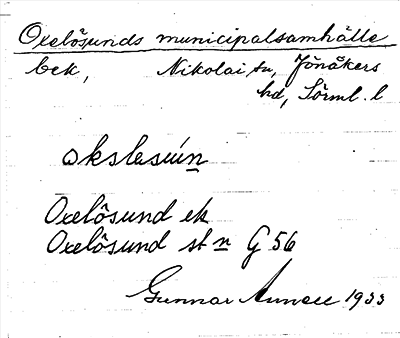 Oxelösunds municipalsamhälle
bek, Nikolai sn, Jönåkers
hd, Sörml. l
okslesún
Oxelösund ek
Oxelösund st n G 56
Gunnar 1933